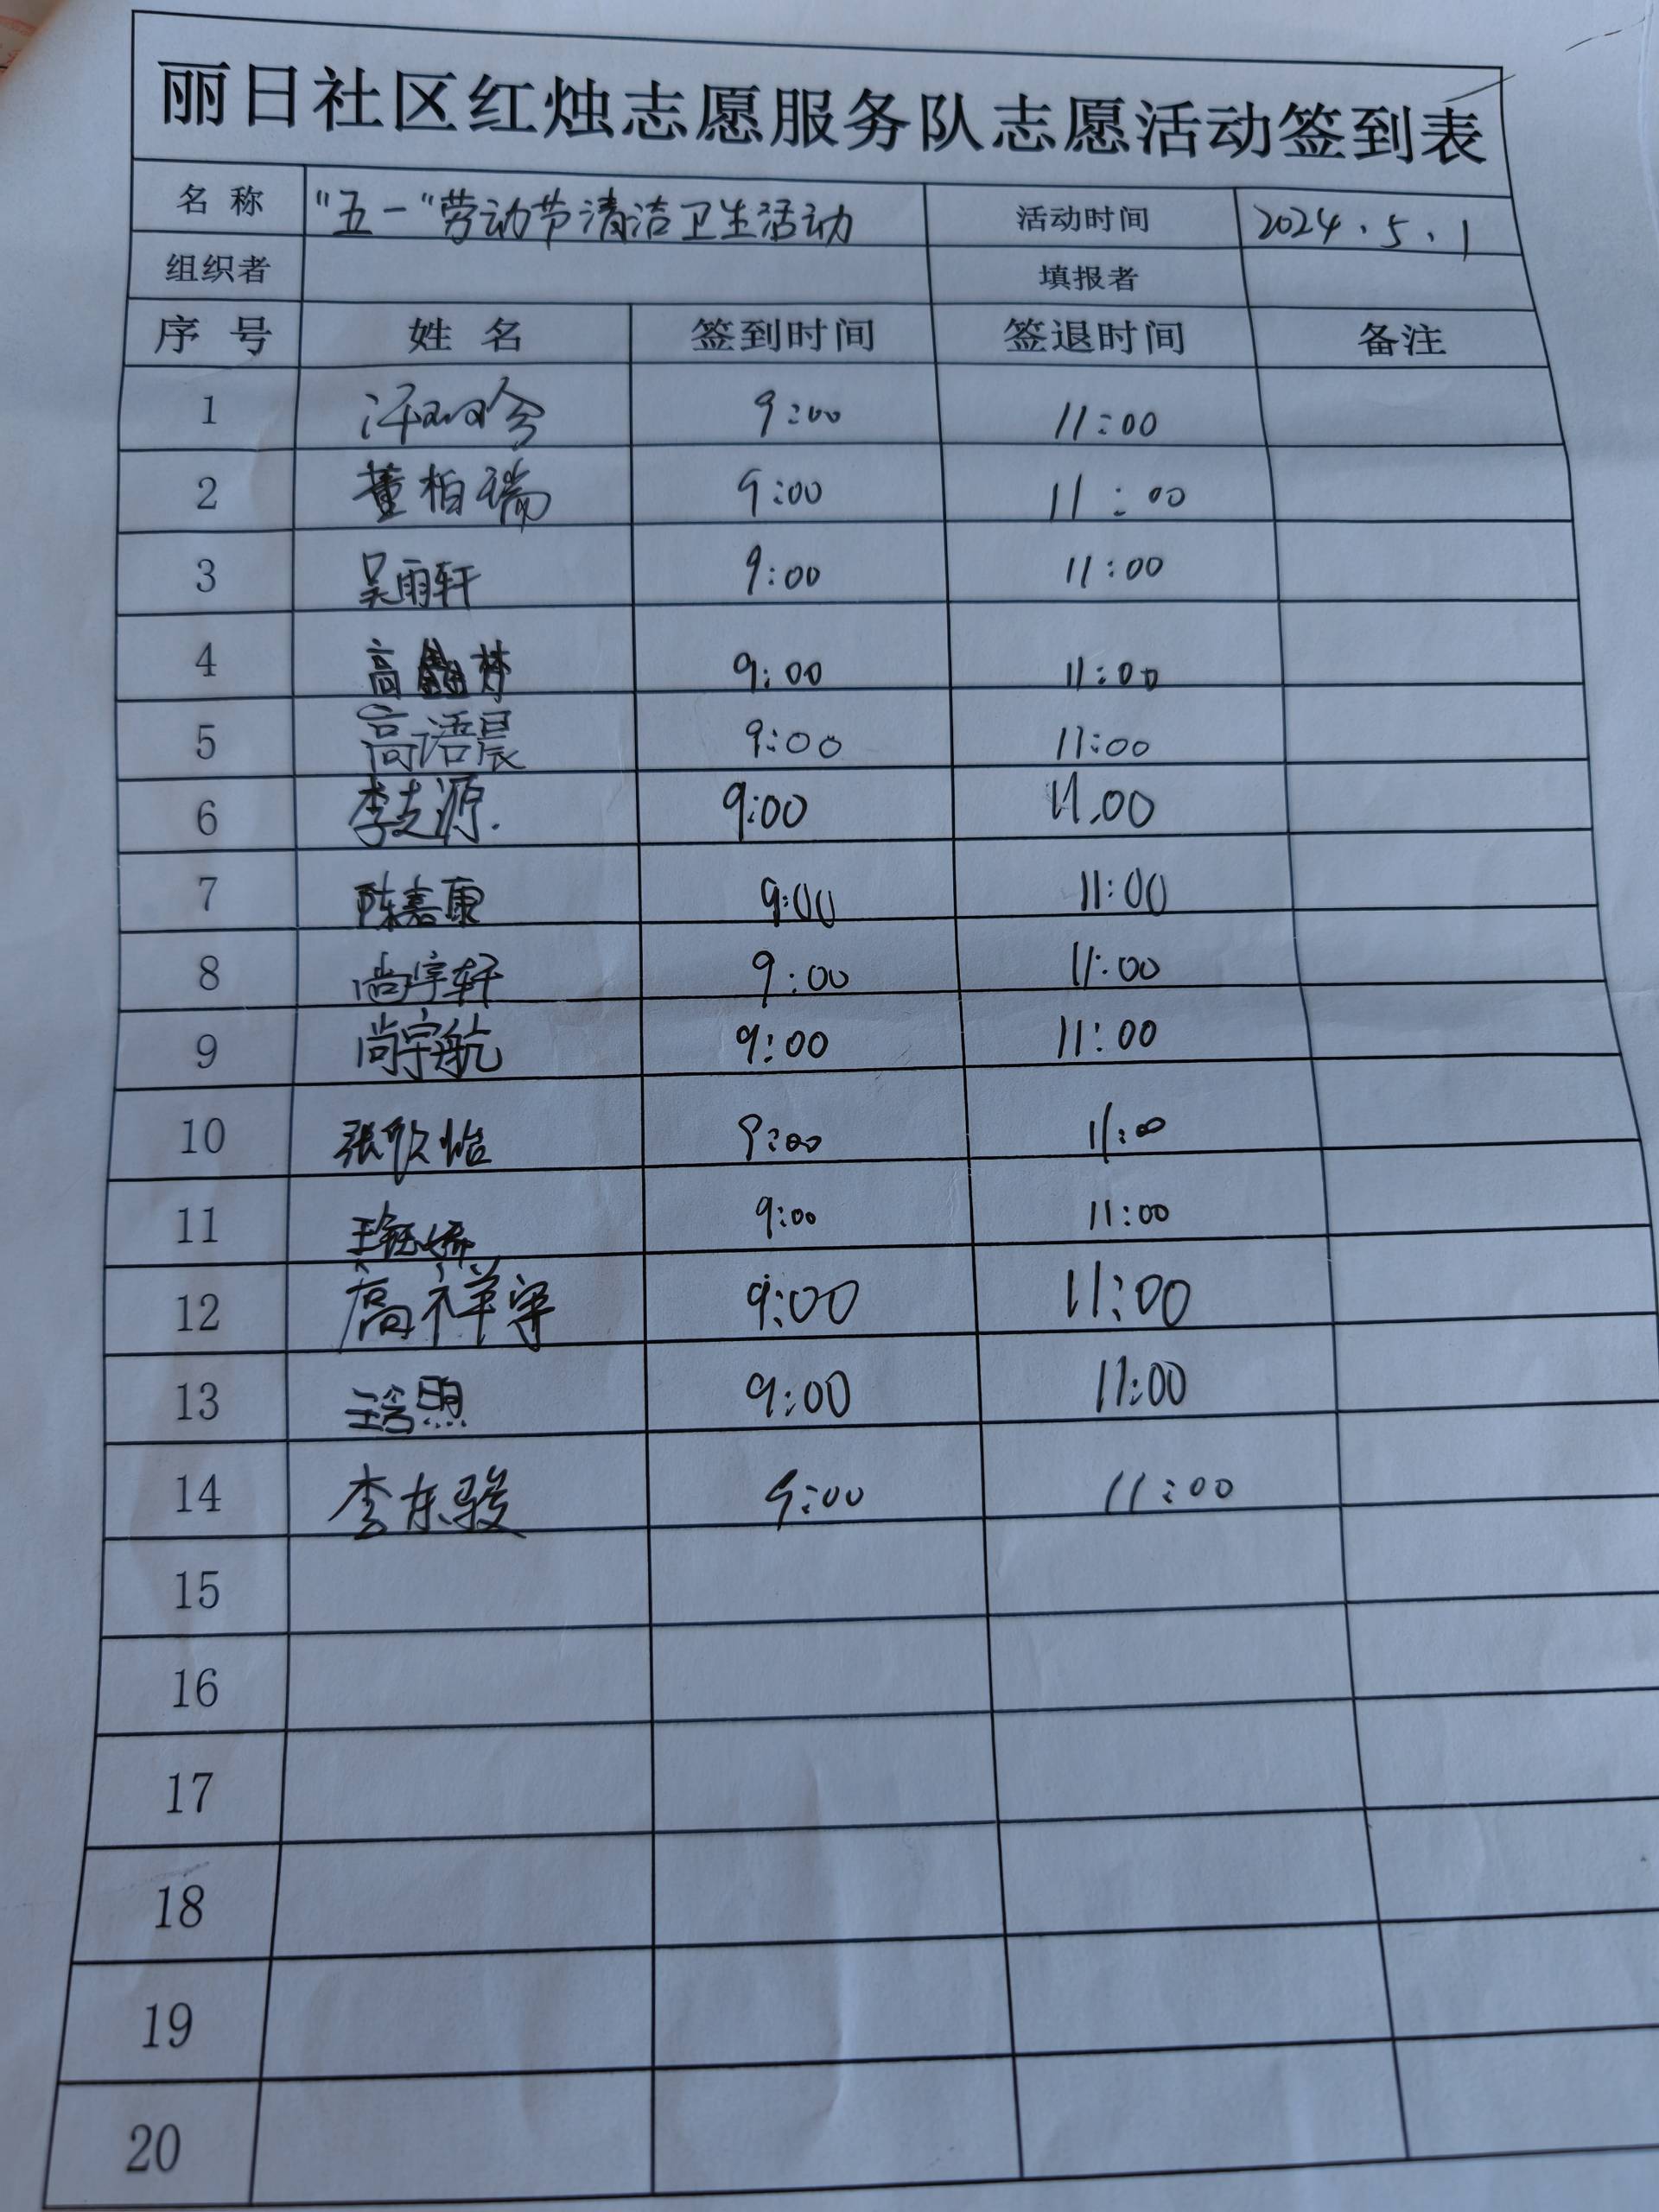 丽日社区红烛志愿服务队志愿活动签到表
名 称 "五一"劳动节清洁卫生活动 活动时间 2024.5.1
组织者 填报者
序 号 姓 名 签到时间 签退时间 备注
1 9:00 11:00
2 董柏瑞 9:00 11:00
3 吴雨轩 9:00 11:00
4 高鑫梦 9:00 11:00
5 高语晨 9:00 11:00
6 李志源. 9:00 11.00
7 陈嘉康 9:00 11:00
8 尚宇轩 9:00 11:00
9 尚宇航 9:00 11:00
10 张欣怡 9:00 11:00
11 王钰娇 9:00 11:00
12 高祥宇 9:00 11:00
13 9:00 11:00
14 李东骏 9:00 11:00
15
16
17
18
19
20